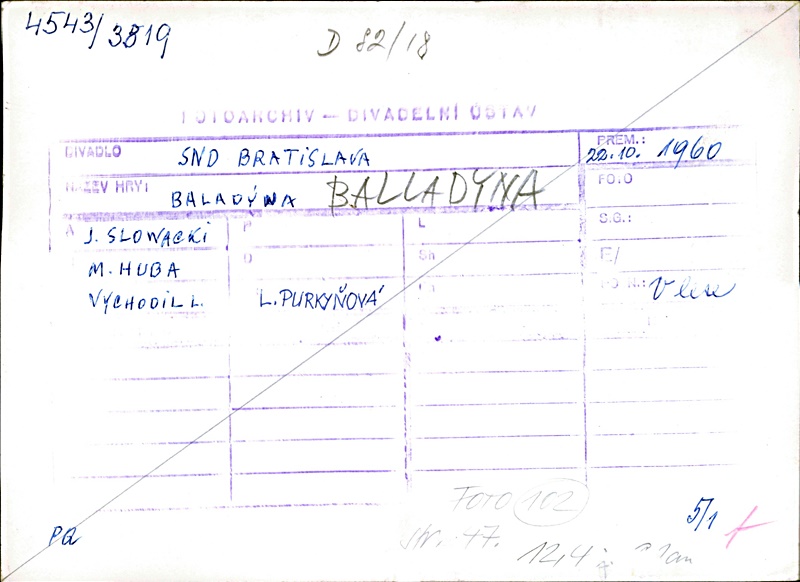 4543/3819
D 82/18
FOTOARCHIV — DIVADELNÍ ÚSTAV
DIVADLO SND BRATISLAVA
PREM.: 22.10. 1960
NÁZEV HRY: BALADÝNA BALLADYNA
FOTO
A J. SLOWACKI P L S.G.:
M. HUBA Sh E/
VYCHODIL L. L. PURKYŇOVÁ V lese
FOTO 102
5/1
str. 47.
124
PQ